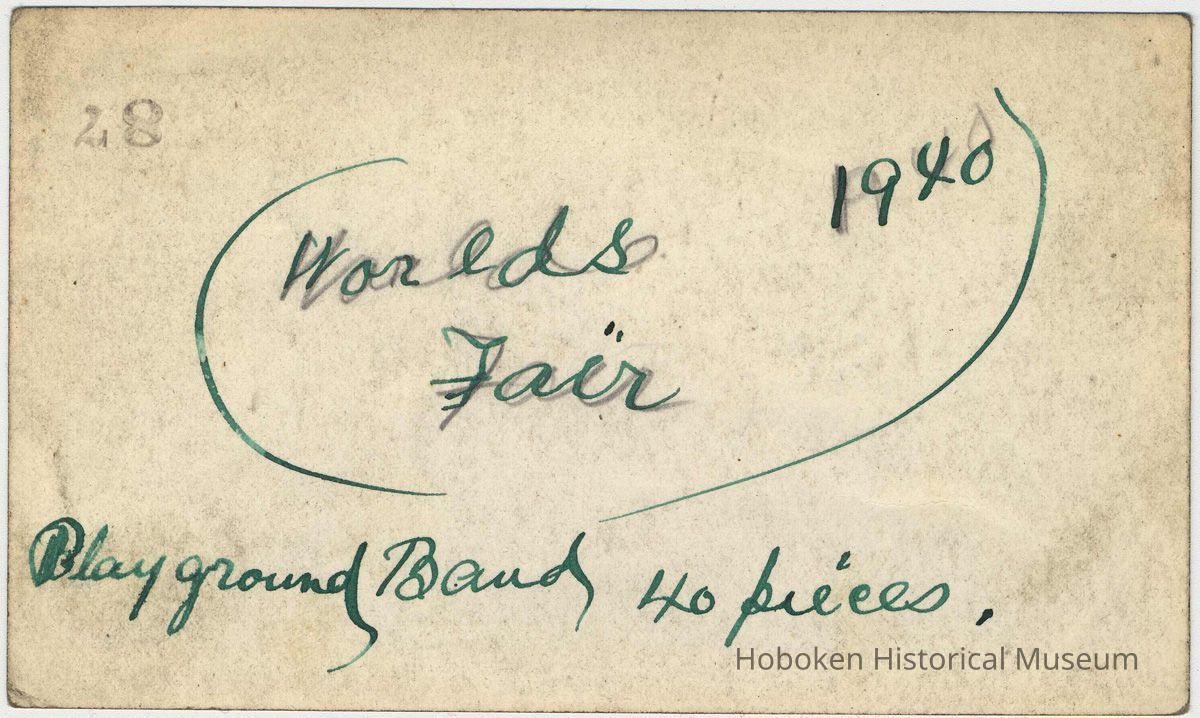 28
1940
Worlds
Fair
Playground Band 40 pieces.
Hoboken Historical Museum